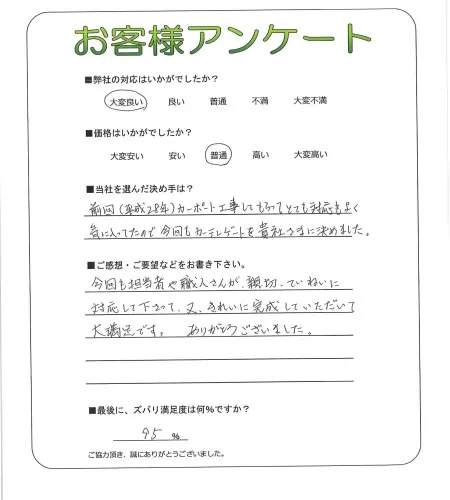 お客様アンケート
■弊社の対応はいかがでしたか？
大変良い 良い 普通 不満 大変不満
■価格はいかがでしたか？
大変安い 安い 普通 高い 大変高い
■当社を選んだ決め手は？
前回（平成28年）カーポート工事してもらってとても対応もよく
気に入ってたので今回もカーテンゲートを貴社さまに決めました。
■ご感想・ご要望などをお書き下さい。
今回も担当者や職人さんが、親切、ていねいに
対応して下さって、又、きれいに完成していただいて
大満足です。 ありがとうございました。
■最後に、ズバリ満足度は何％ですか？
95 ％
ご協力頂き、誠にありがとうございました。